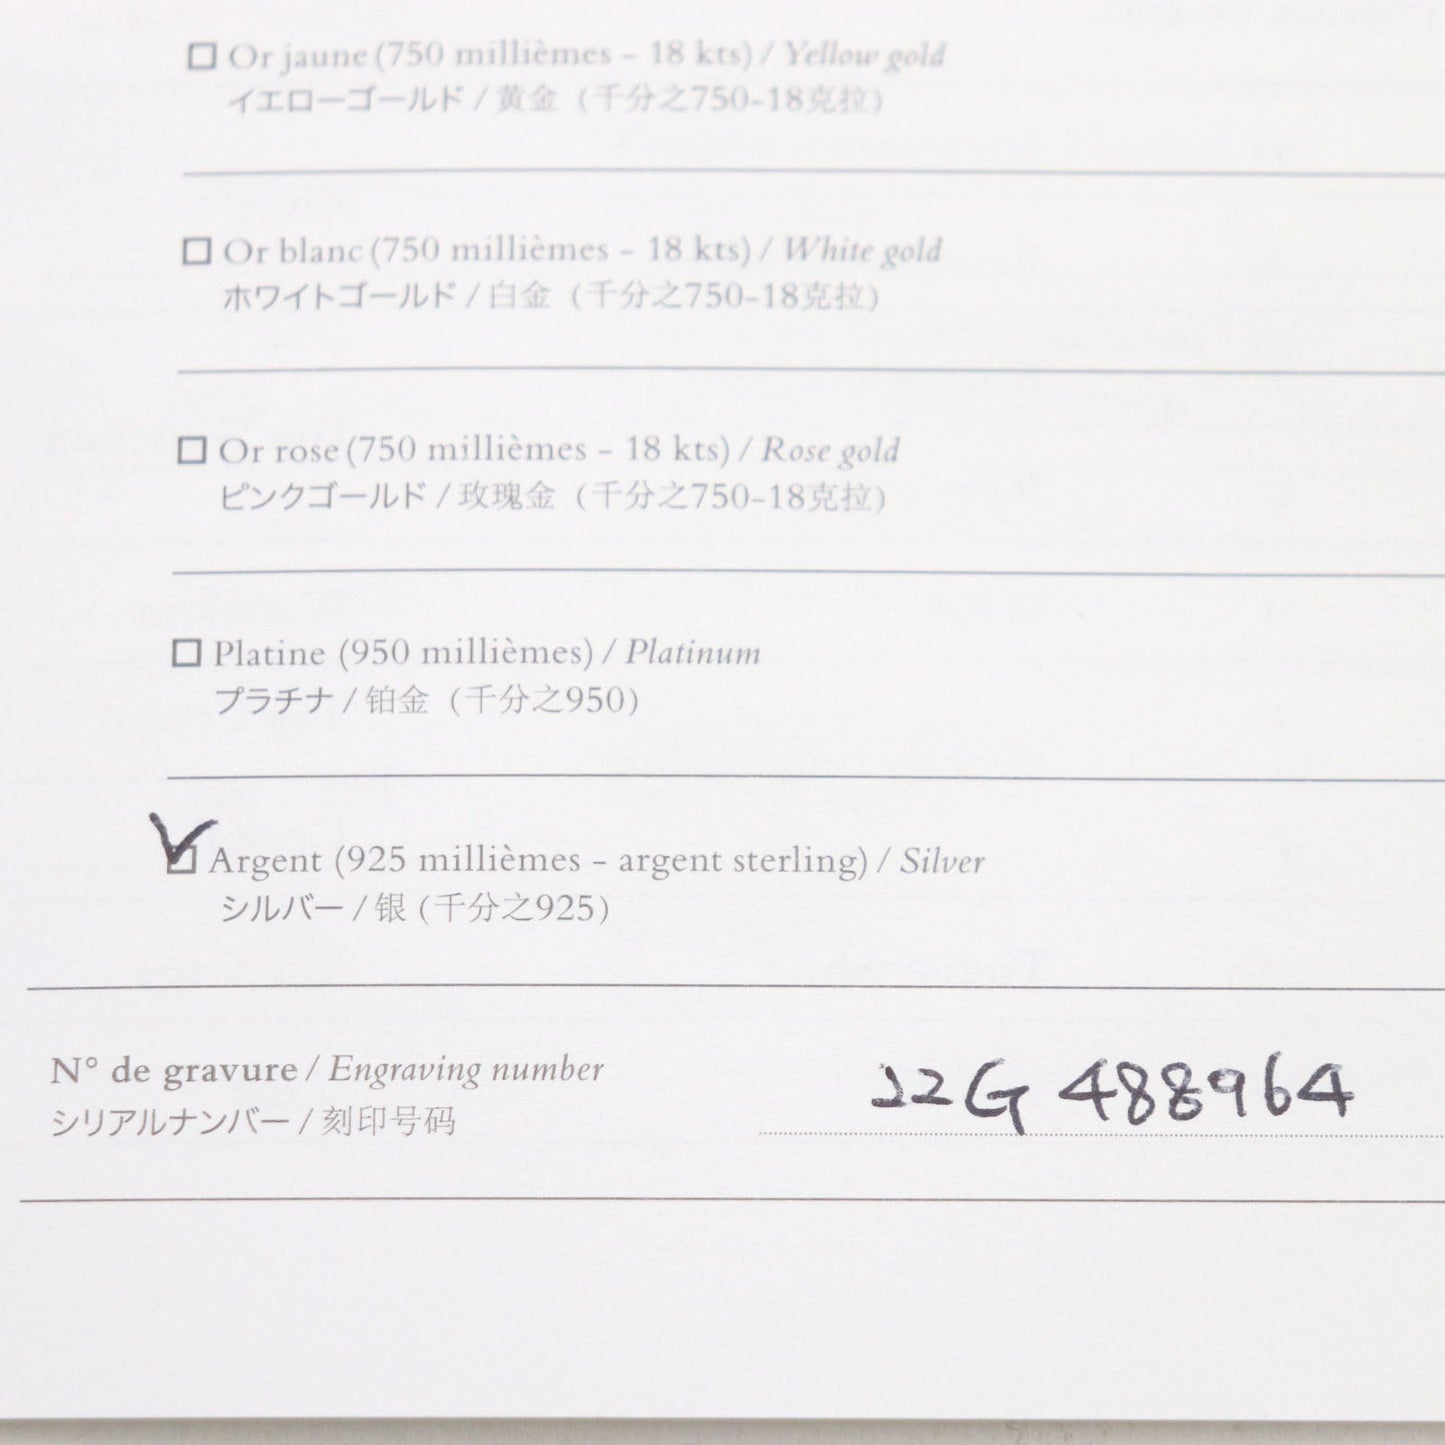 Or jaune (750 millièmes – 18 kts) / Yellow gold
イエローゴールド / 黄金（千分之750-18克拉）
Or blanc (750 millièmes – 18 kts) / White gold
ホワイトゴールド / 白金（千分之750-18克拉）
Or rose (750 millièmes – 18 kts) / Rose gold
ピンクゴールド / 玫瑰金（千分之750-18克拉）
Platine (950 millièmes) / Platinum
プラチナ / 铂金（千分之950）
Argent (925 millièmes – argent sterling) / Silver
シルバー / 银 (千分之925)
N° de gravure / Engraving number
シリアルナンバー / 刻印号码
22G 488964